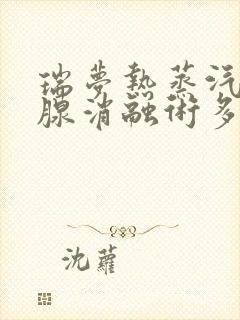 瑞夢熱蒸汽
腺消融術多
沈蘿